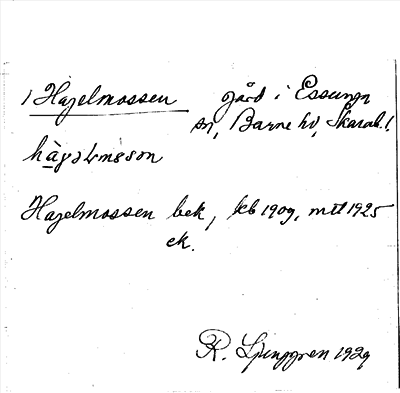 1 Hazelmossen gård i Essunga
sn, Barne hd, Skarab. l.
hàʒəlmɵsən
Hazelmossen bek, kb 1909, mtl 1925
ek.
R. Ljunggren 1929